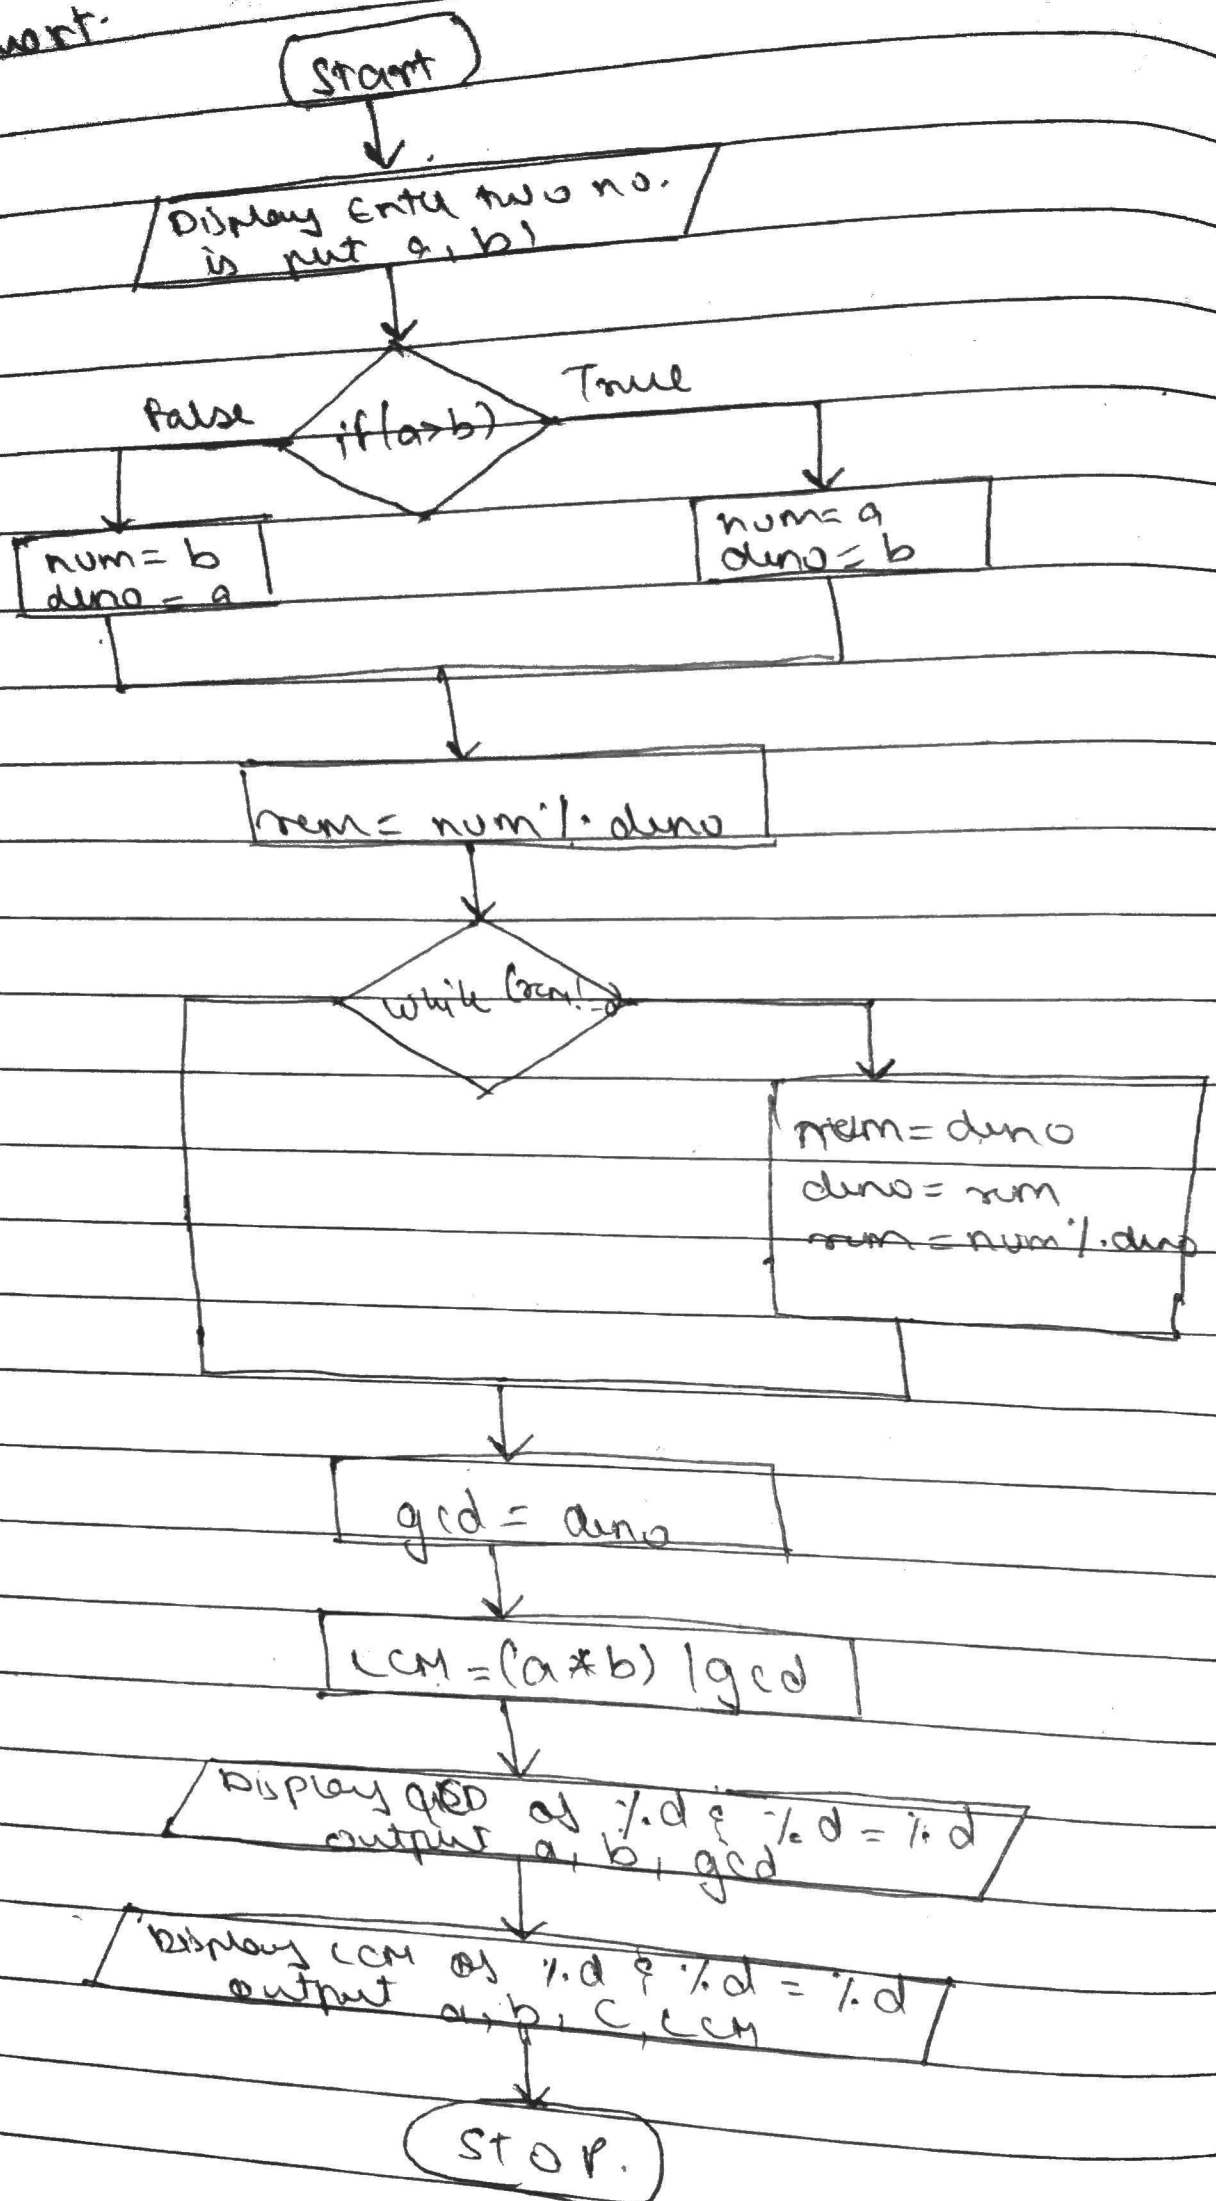 Start
Display Enter two no.
is put a, b!
False
True
if(a>b)
num= b
deno = a
num= a
deno = b
rem = num % deno
while (rem!=0
deno
deno = rem
rem = num % deno
gcd = deno
LCM = (a*b) /gcd
Display GCD of %d & %d = %d
output a, b, gcd
Display LCM of %d & %d = %d
output a, b, c, LCM
STOP.